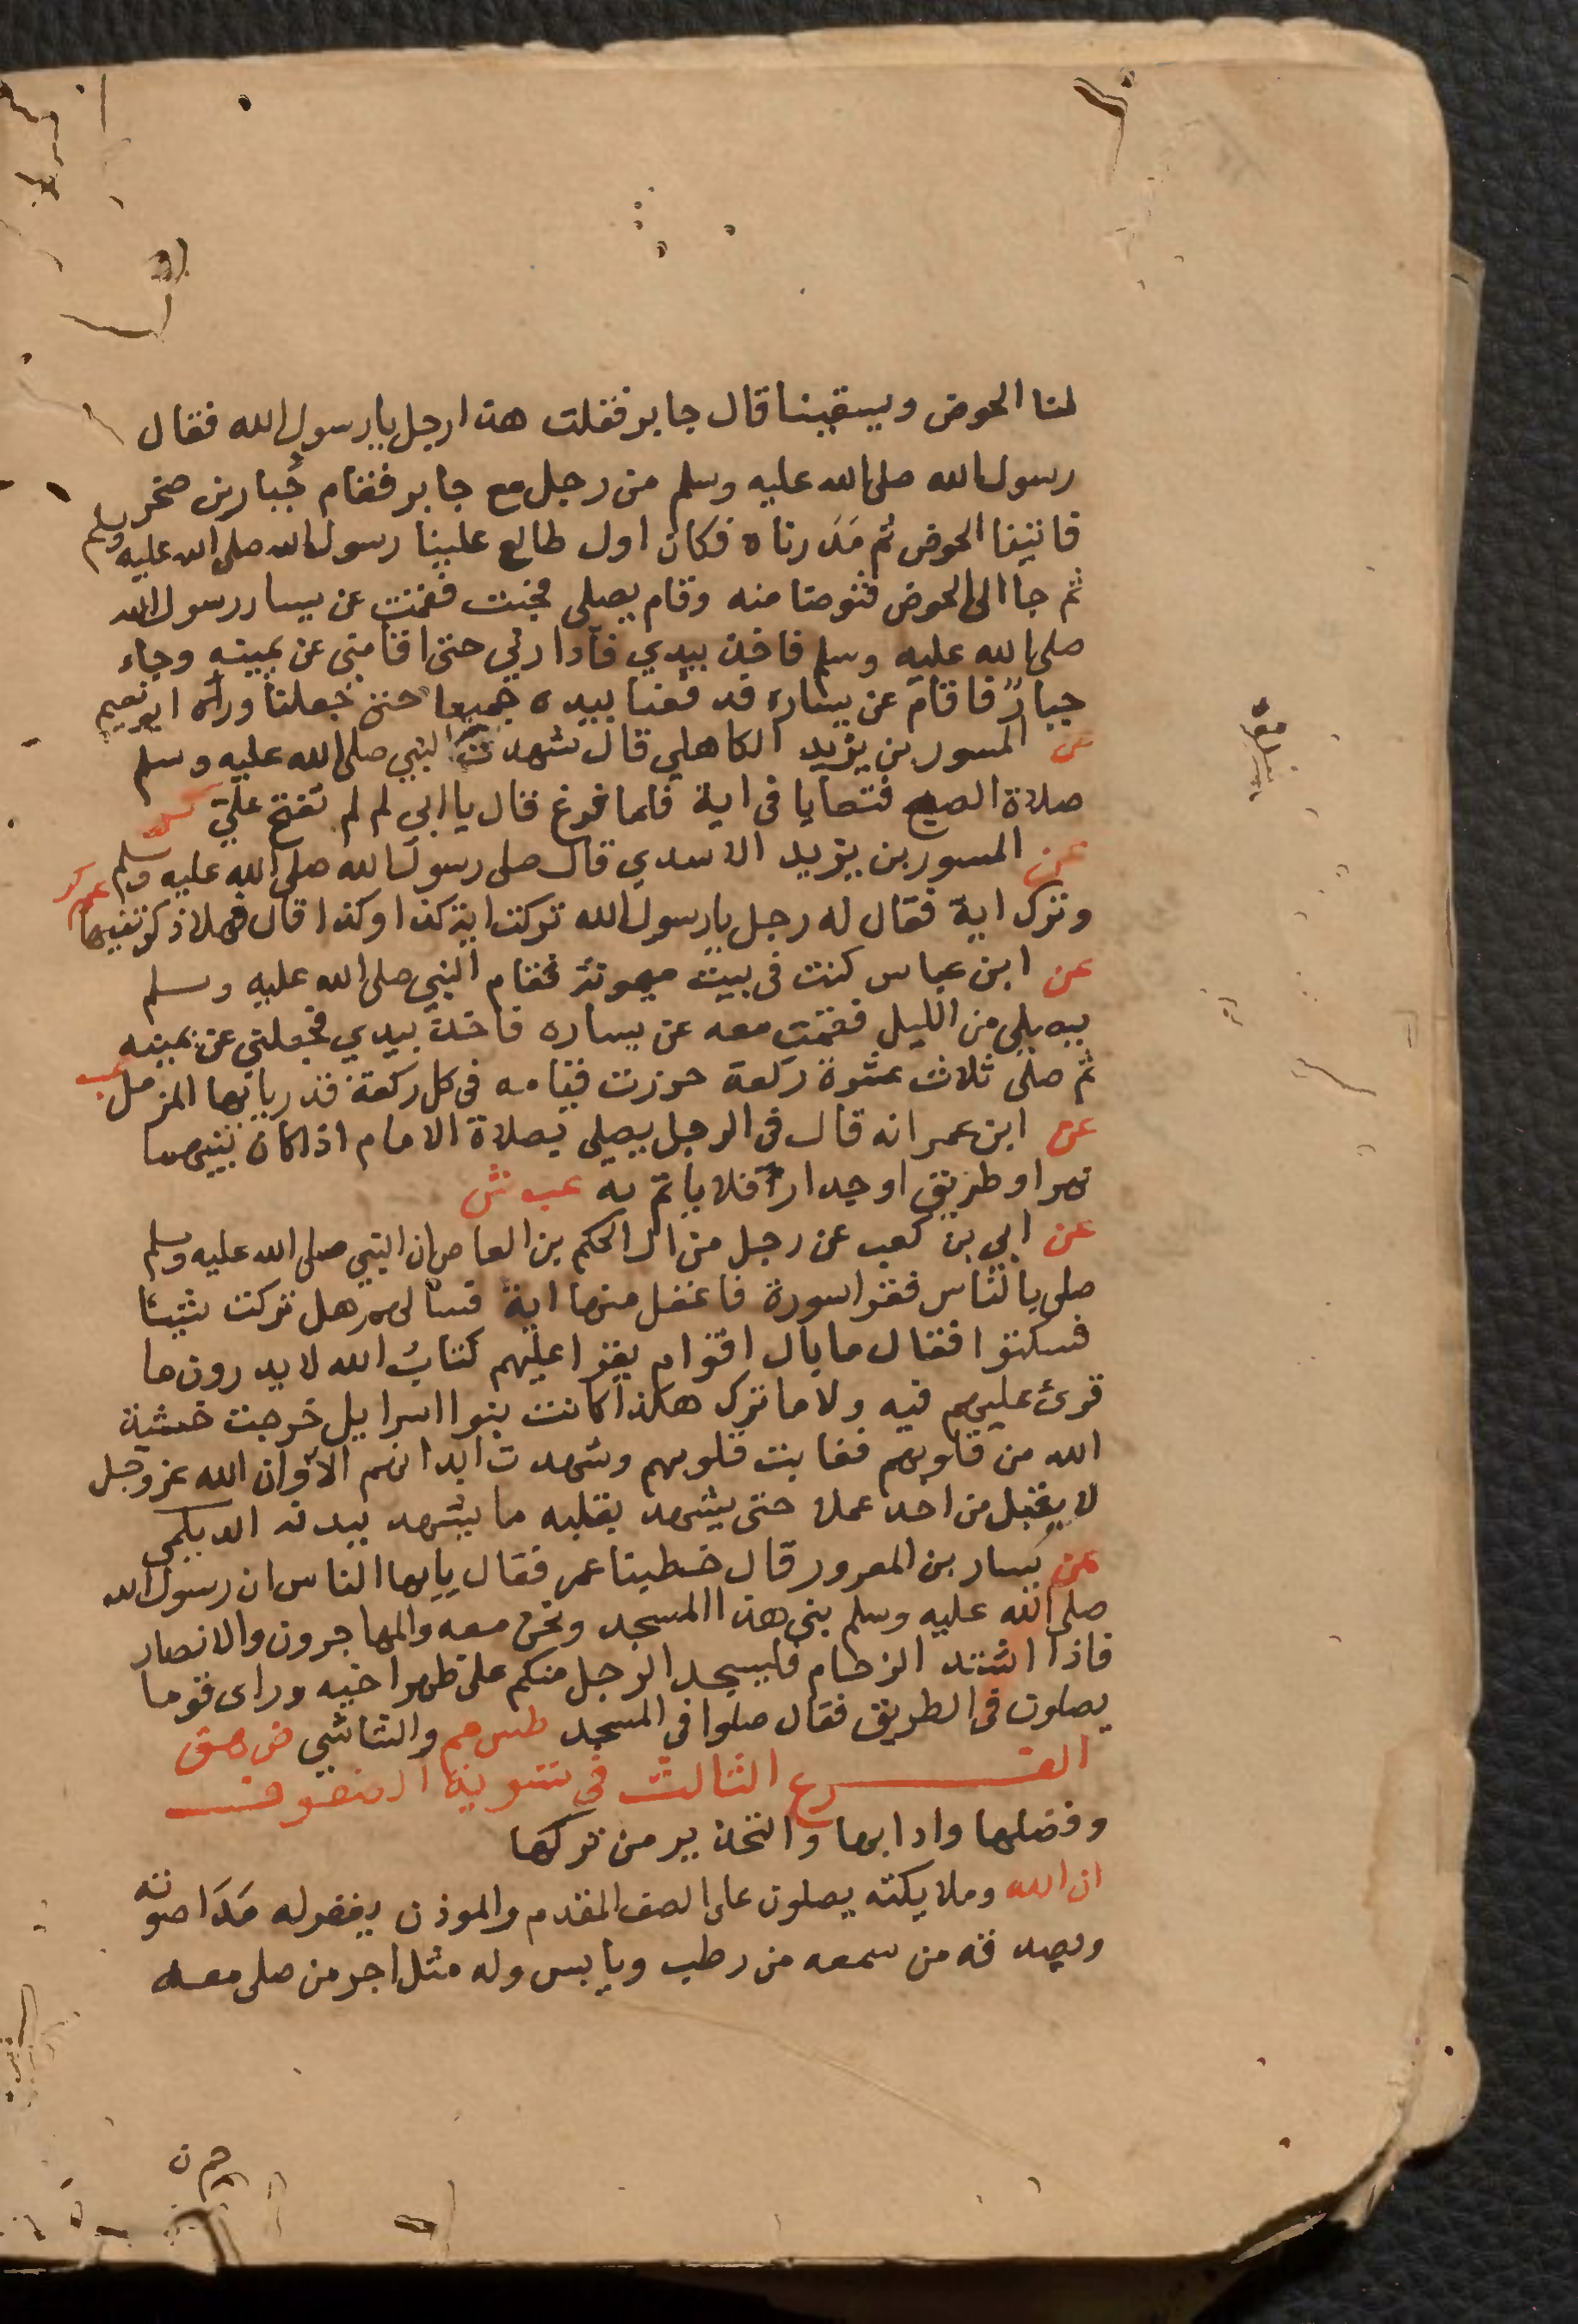 لنا الحوض ويسقينا قال جابر فقلت هذا رجل يا رسول الله فقال
رسول الله صلى الله عليه وسلم من رجل مع جابر فقام جُبار بن صخر
فاتينا الحوض ثم مَدَرناه فكان اول طالع علينا رسول الله صلى الله عليه وسلم
ثم جا الى الحوض فتوضا منه وقام يصلى فجئت فقمت عن يسار رسول الله
صلى الله عليه وسلم فاخذ بيدي فأدارني حتى اقامني عن يمينه وجاء
جبارٌ فاقام عن يساره فدفعنا بيده جميعا حتى جعلنا وراه ابو نعيم
عن المسور بن يزيد الكاهلي قال شهدت النبي صلى الله عليه وسلم
صلاة الصبح فتعايا فى اية فلما فرغ قال يا ابي لم لم تفتح عليّ كر
عن المسور بن يزيد الاسدي قال صلى رسول الله صلى الله عليه وسلم
وترك اية فقال له رجل يا رسول الله تركت اية كذا وكذا قال فهلا ذكرتنيها عم كر
عن ابن عباس كنت فى بيت ميمونة فقام النبي صلى الله عليه وسلم
يصلى من الليل فقمت معه عن يساره فاخذ بيدي فجعلني عن يمينه
ثم صلى ثلاث عشرة ركعة حزرت قيامه فى كل ركعة قدر يايها المزمل عب
عن ابن عمر انه قال فى الرجل يصلى بصلاة الامام اذا كان بينهما
نهر او طريق او جدار فلا ياتم به عب ش
عن ابي بن كعب عن رجل من ال الحكم بن العاص ان النبي صلى الله عليه وسلم
صلى بالناس فقرا سورة فاغفل منها اية فسالهم هل تركت شيئا
فسكتوا فقال ما بال اقوام يقرا عليهم كتابُ الله لا يدرون ما
قرئ عليهم فيه ولا ما ترك هكذا كانت بنوا اسرايل خرجت خشية
الله من قلوبهم فغابت قلوبهم وشهدت ابدانهم الا وان الله عز وجل
لا يقبل من احد عملا حتى يشهد بقلبه ما يشهد ببدنه الديلمي
عن يسار بن المعرور قال خطبنا عمر فقال يايها الناس ان رسول الله
صلى الله عليه وسلم بنى هذا المسجد ونحن معه والمهاجرون والانصار
فاذا اشتد الزحام فليسجد الرجل منكم على ظهر اخيه وراى قوما
يصلون فى الطريق فقال صلوا فى المسجد طس حم والشاشي ض هق
الفرع الثالث فى تسوية الصفوف
وفضلها وادابها والتحذير من تركها
ان الله وملايكته يصلون على الصف المقدم والموذن يغفر له مَدَا صوته
ويصدقه من سمعه من رطب ويابس وله مثل اجر من صلى معه
حم ن